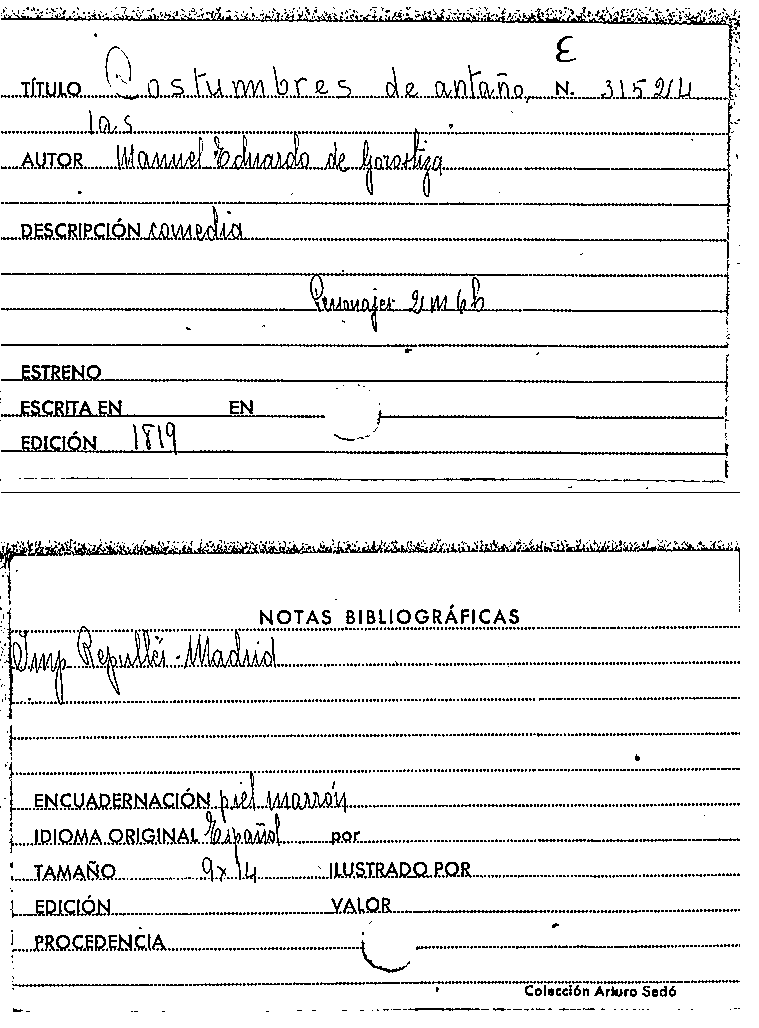 E
TÍTULO Costumbres de antaño, N. 31524
las
AUTOR Manuel Eduardo de Gorostiza
DESCRIPCIÓN comedia
Personajes 2 m 6 h
ESTRENO
ESCRITA EN EN
EDICIÓN 1819
NOTAS BIBLIOGRÁFICAS
Imp Repullés - Madrid
ENCUADERNACIÓN piel marrón
IDIOMA ORIGINAL Español por
TAMAÑO 9x14 ILUSTRADO POR
EDICIÓN VALOR
PROCEDENCIA
Colección Arturo Sedó